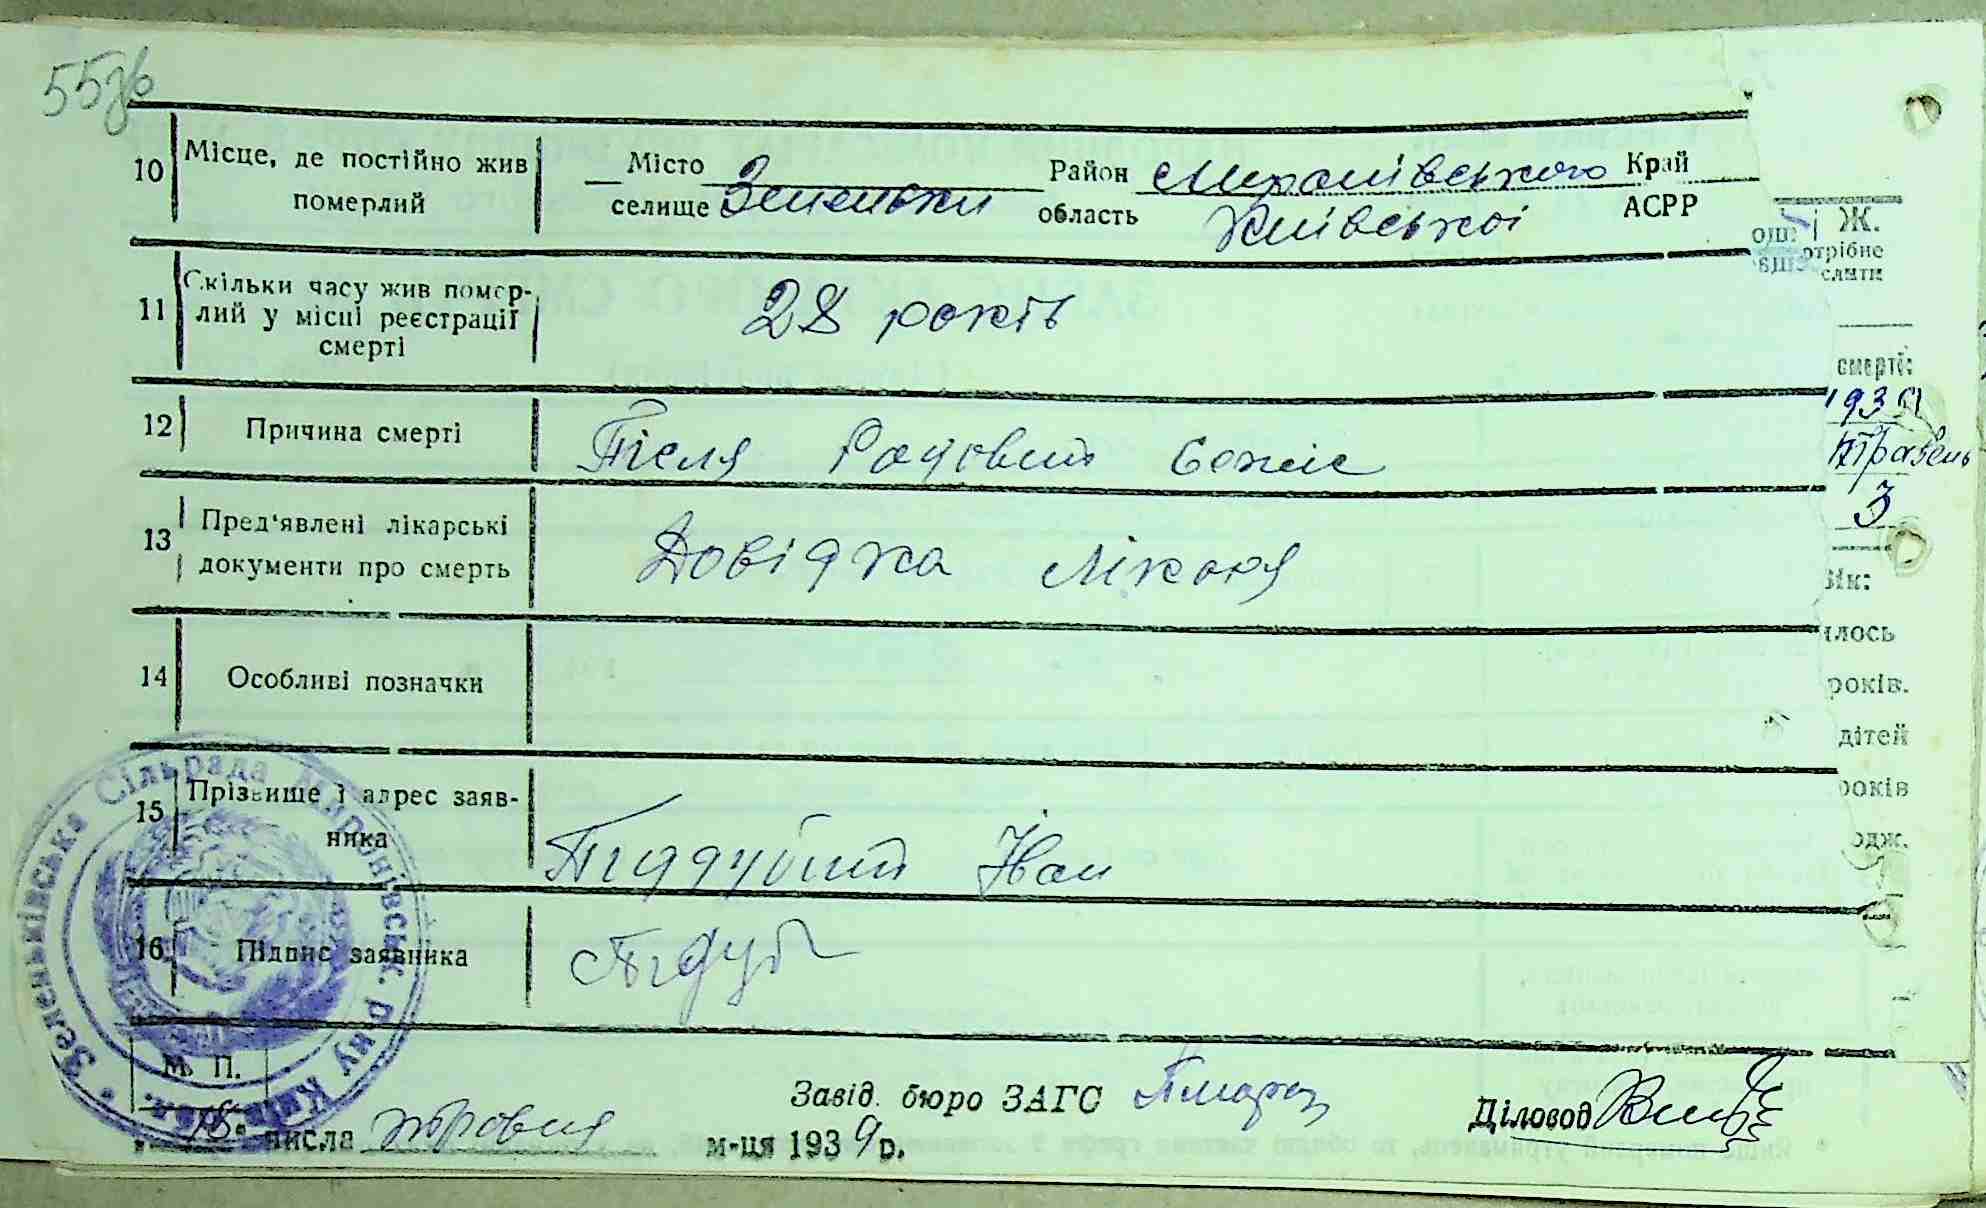 55зв
10 Місце, де постійно жив померлий
Місто селище Зеленьки Район Миронівського Край
область Київської АСРР
11 Скільки часу жив помер-
лий у місці реєстрації
смерті
28 років
12 Причина смерті
Після Родовий
13 Пред'явлені лікарські
документи про смерть
Довідка лікаря
14 Особливі позначки
15 Прізвище і адрес заяв-
ника
Піддубний Іван
16 Підпис заявника
Піддуб
М. П.
Завід. бюро ЗАГС
Діловод
18 числа травня м-ця 1939 р.
Зеленьківська Сільрада Миронівськ. р-ну Київ
Ж.
отрібне
слити
смерті:
1939
травень
3
Вік:
илось
років.
дітей
років
одж.